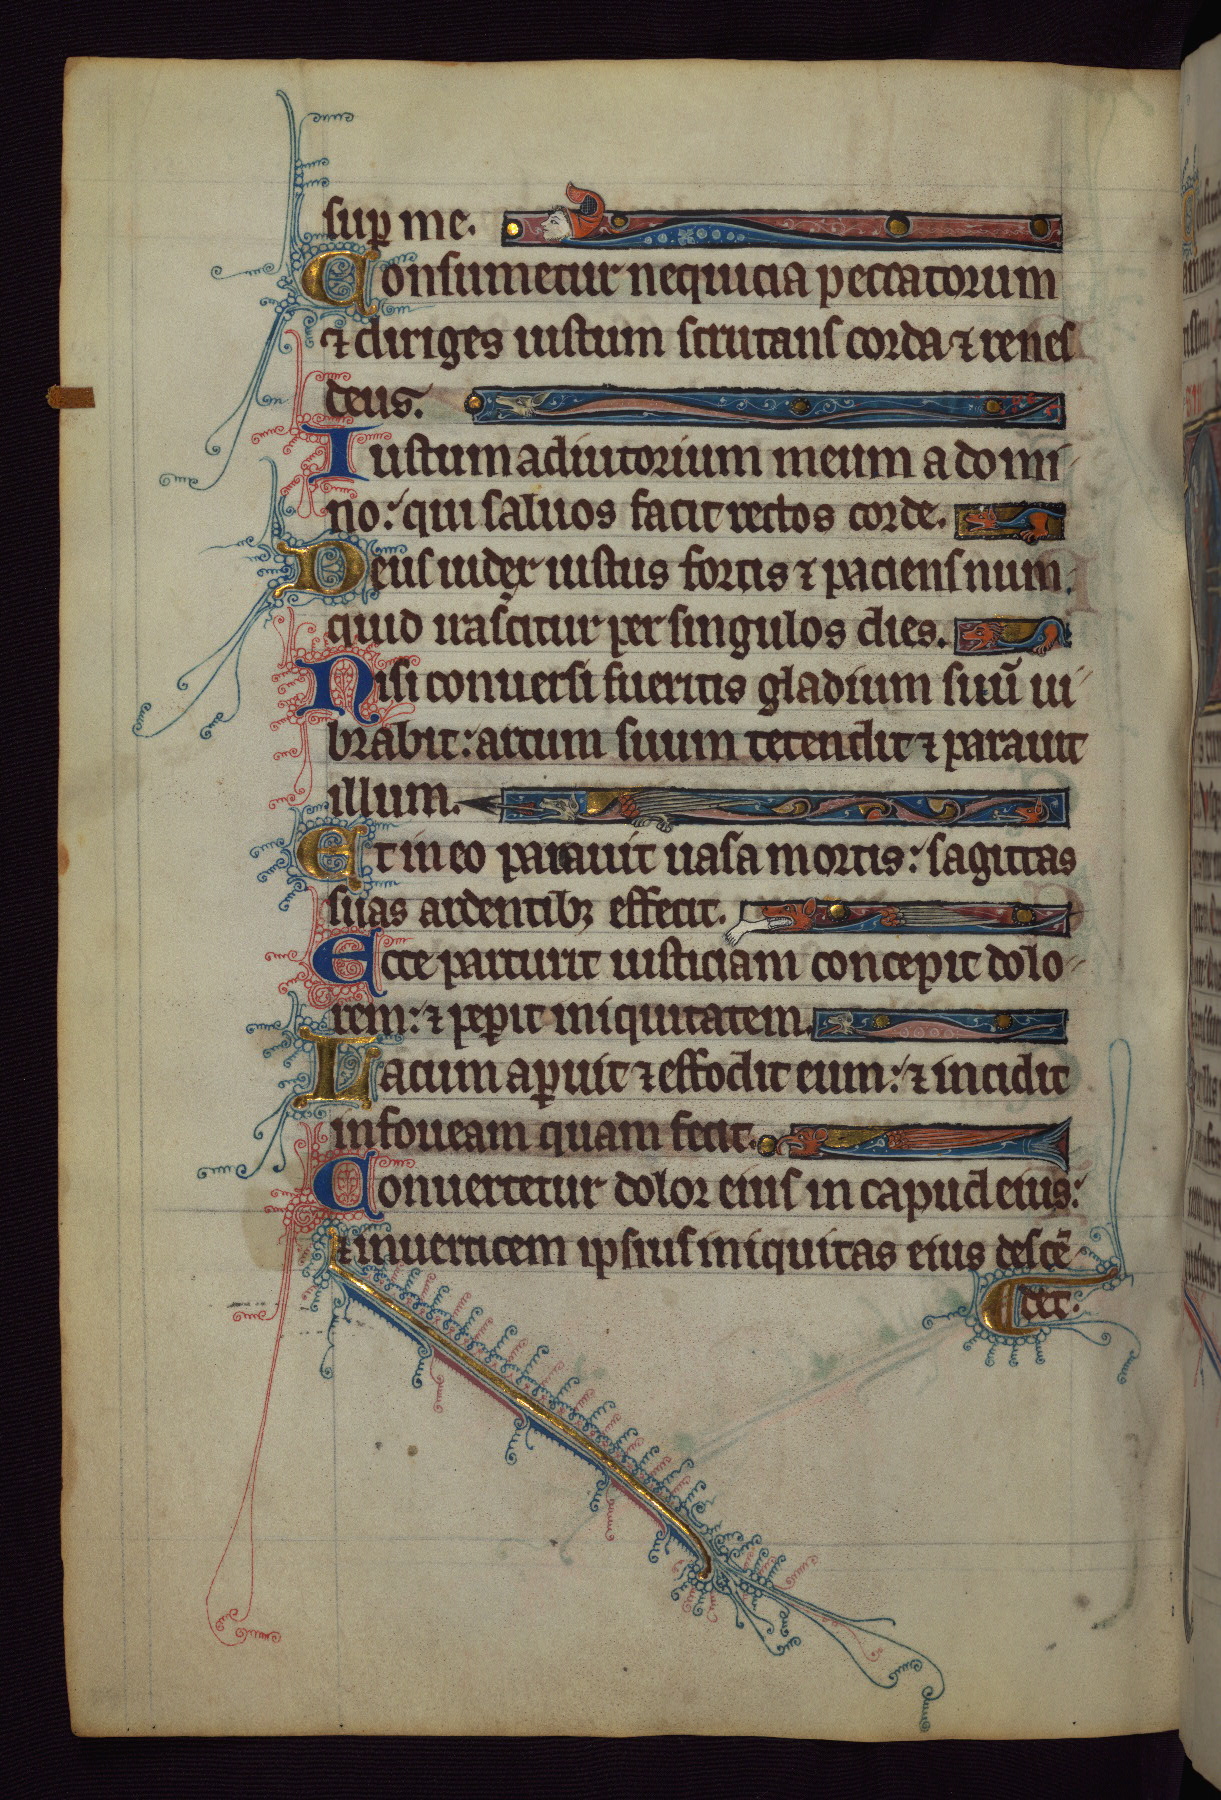 sup me.
Consumetur nequicia peccatorum
⁊ diriges iustum scrutans corda ⁊ renes
deus.
Iustum adiutorium meum a domi
no: qui saluos facit rectos corde.
Deus iudex iustus fortis ⁊ paciens num
quid irascitur per singulos dies.
Nisi conuersi fueritis gladium suū ui
brabit: arcum suum tetendit ⁊ parauit
illum.
Et in eo parauit uasa mortis: sagittas
suas ardentibꝫ effecit.
Ecce parturit iusticiam concepit dolo
rem: ⁊ peꝑit iniquitatem.
Lacum aꝑuit ⁊ effodit eum: ⁊ incidit
in foueam quam fecit.
Conuertetur dolor eius in capud eius:
⁊ in uerticem ipsius iniquitas eius descē
det.